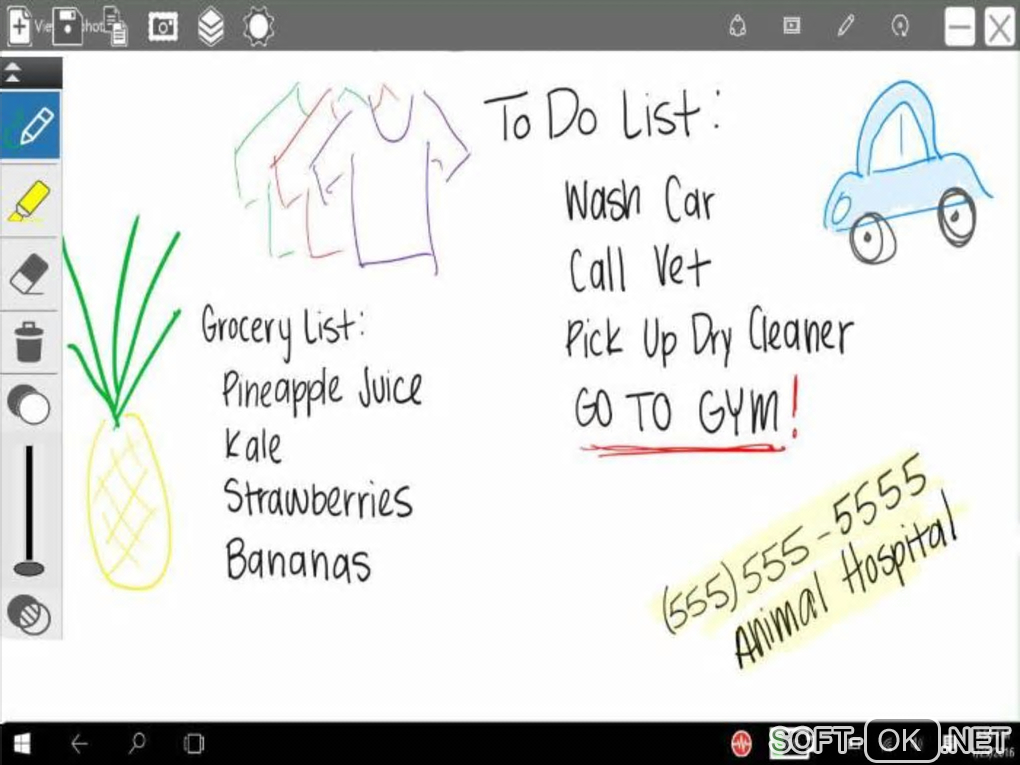 To Do List:
Wash Car
Call Vet
Pick Up Dry Cleaner
GO TO GYM!
Grocery List:
Pineapple Juice
Kale
Strawberries
Bananas
(555)555-5555
Animal Hospital
SOFT-OK.NET